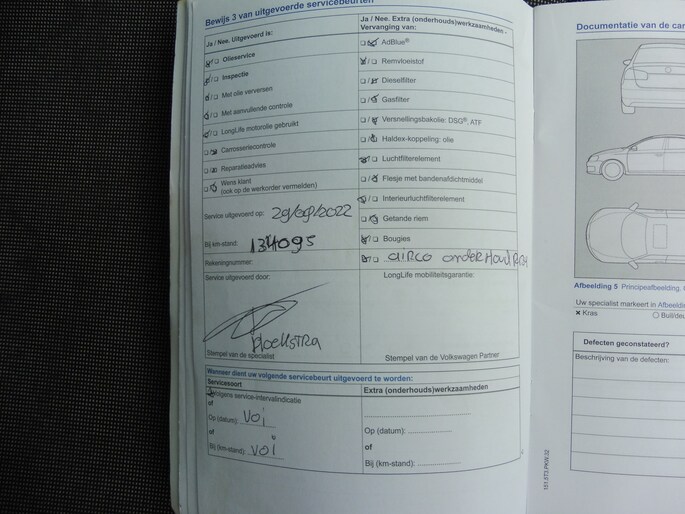 Bewijs 3 van uitgevoerde servicebeurten
Ja / Nee. Uitgevoerd is:
Olieservice
Inspectie
Met olie verversen
Met aanvullende controle
LongLife motorolie gebruikt
Carrosseriecontrole
Reparatieadvies
Wens klant
(ook op de werkorder vermelden)
Service uitgevoerd op: 29/09/2022
Bij km-stand: 134095
Rekeningnummer:
Service uitgevoerd door:
Hoekstra
Stempel van de specialist
Ja / Nee. Extra (onderhouds)werkzaamheden -
Vervanging van:
AdBlue®
Remvloeistof
Dieselfilter
Gasfilter
Versnellingsbakolie: DSG®, ATF
Haldex-koppeling: olie
Luchtfilterelement
Flesje met bandenafdichtmiddel
Interieurluchtfilterelement
Getande riem
Bougies
airco onderhoud
LongLife mobiliteitsgarantie:
Stempel van de Volkswagen Partner
Wanneer dient uw volgende servicebeurt uitgevoerd te worden:
Servicesoort
Volgens service-intervalindicatie
of
Op (datum): voi
of
Bij (km-stand): voi
Extra (onderhouds)werkzaamheden
Op (datum):
of
Bij (km-stand):
151.5T3.PKW.32
Documentatie van de car
Afbeelding 5 Principeafbeelding.
Uw specialist markeert in Afbeeldin
x Kras
Buil/deu
Defecten geconstateerd?
Beschrijving van de defecten: